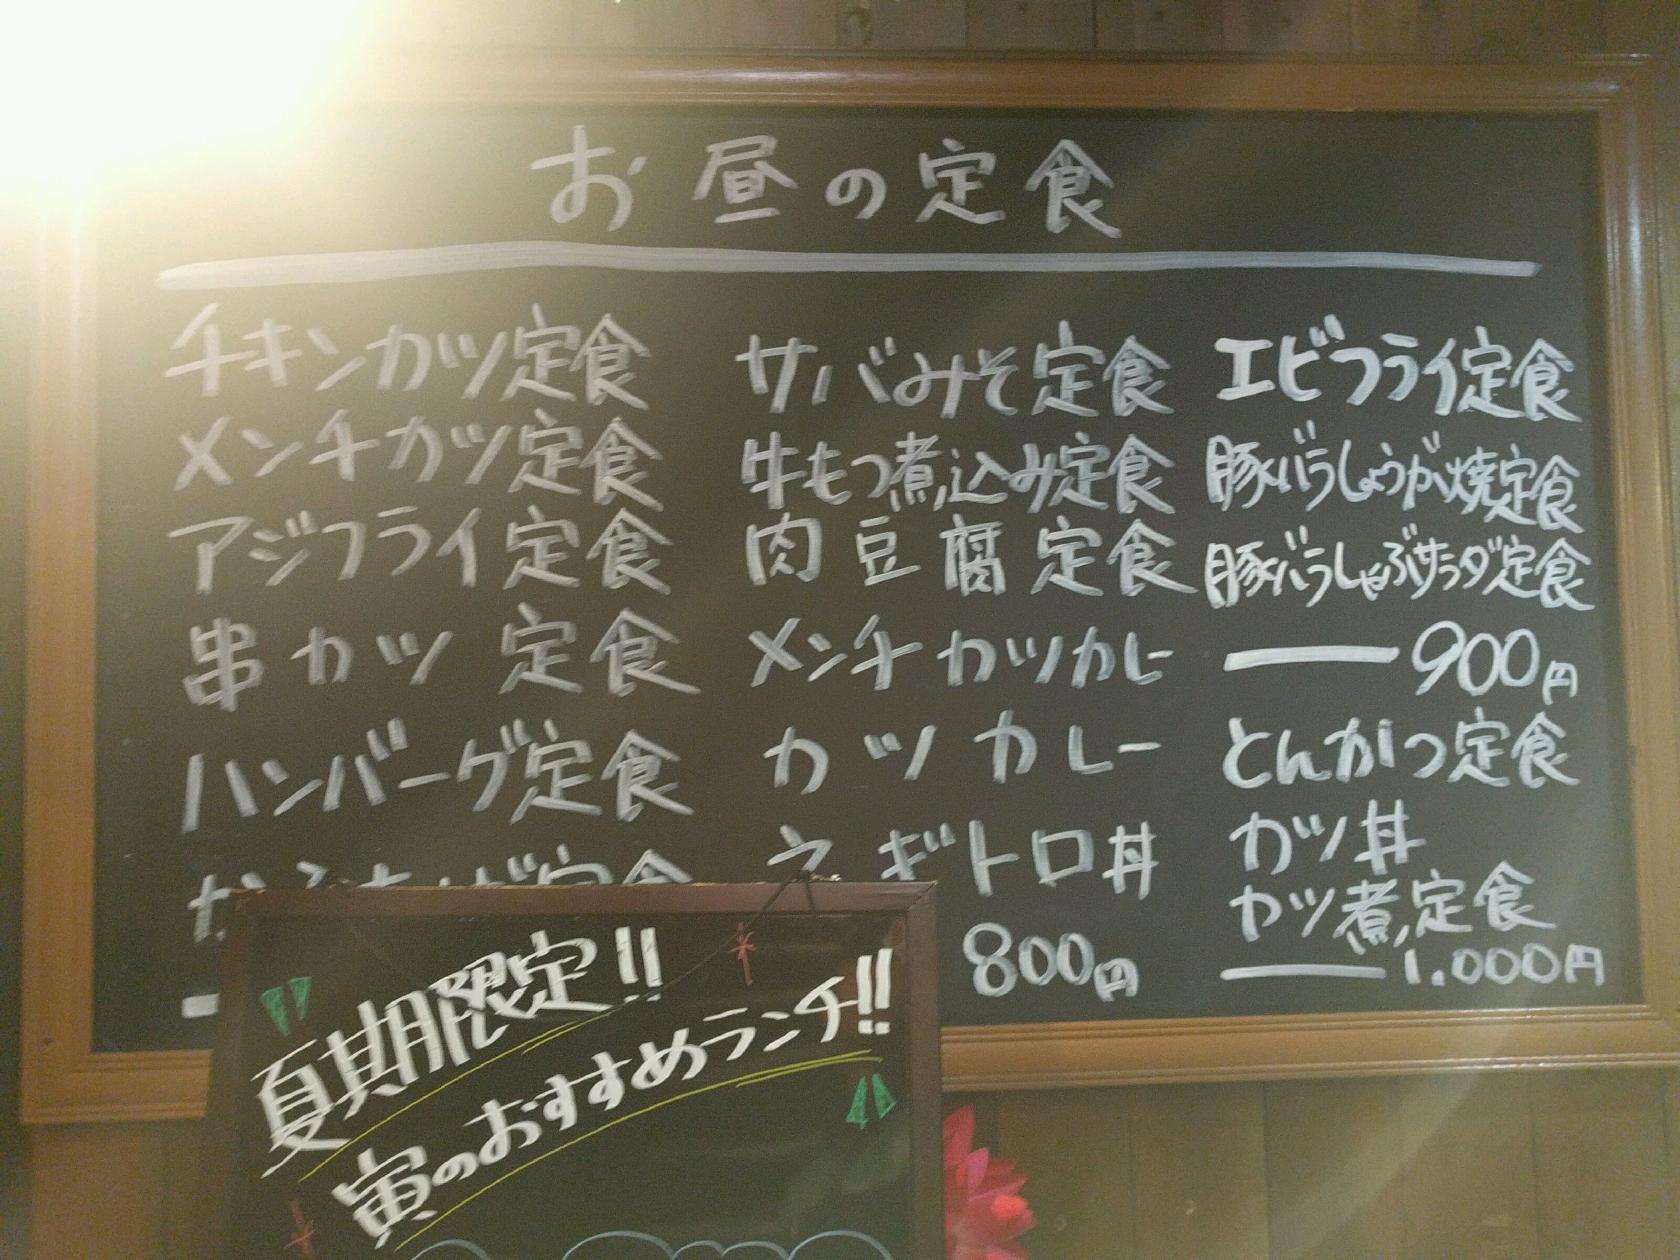 お昼の定食
チキンカツ定食
メンチカツ定食
アジフライ定食
串カツ定食
ハンバーグ定食
からあげ定食
サバみそ定食
牛もつ煮込み定食
肉豆腐定食
メンチカツカレー
カツカレー
ネギトロ丼
800円
エビフライ定食
豚バラしょうが焼定食
豚バラしゃぶサラダ定食
900円
とんかつ定食
カツ丼
カツ煮定食
1.000円
夏期限定!!
寅のおすすめランチ!!